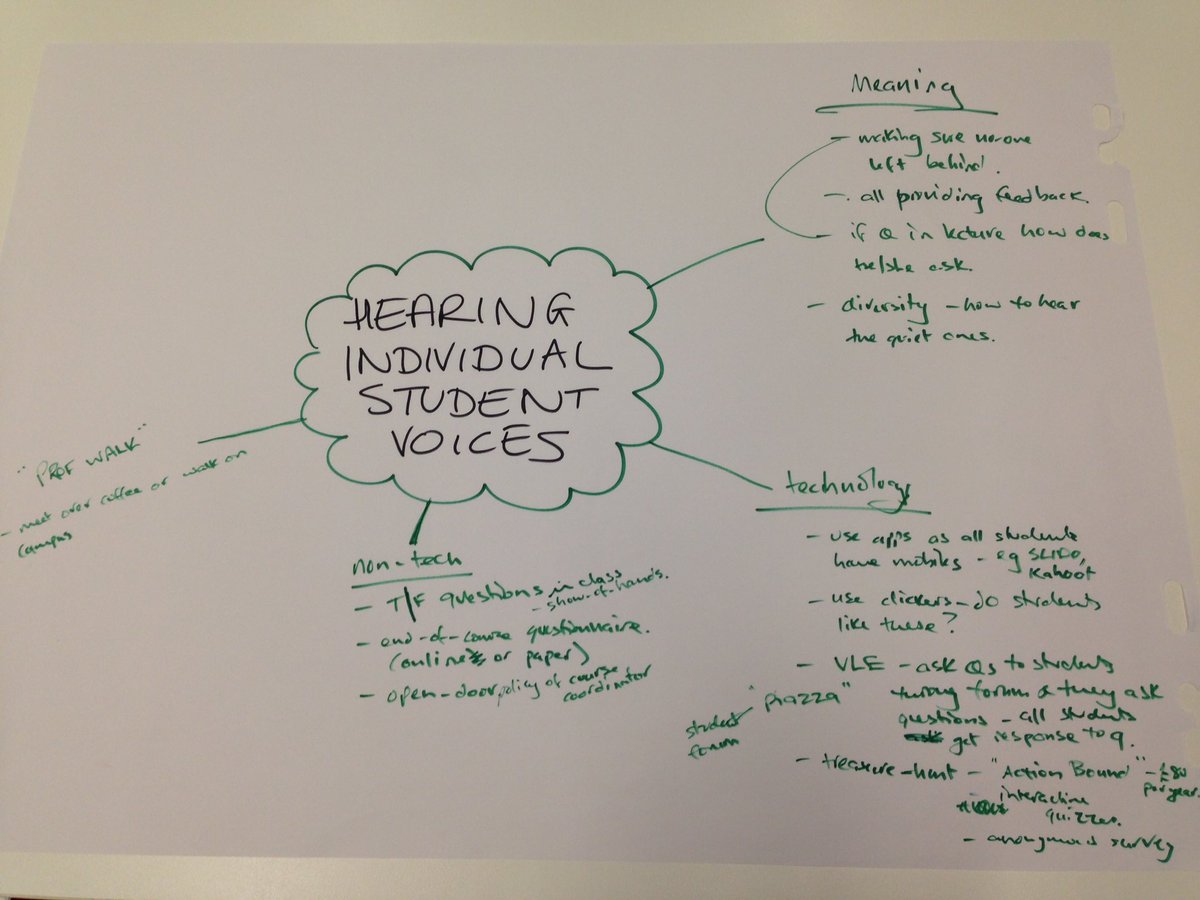 HEARING
INDIVIDUAL
STUDENT
VOICES
Meaning
- making sure no-one
left behind.
- all providing feedback.
- if Q in lecture how does
he/she ask.
- diversity - how to hear
the quiet ones.
technology
- use apps as all students
have mobiles - eg SLIDO,
Kahoot
- use clickers - do students
like these?
- VLE - ask Qs to students
throug forum & they ask
questions - all students
get response to q.
"piazza"
student
forum
- treasure-hunt - "Action Bound" - £80
per year.
interactive
quizzes.
- anonymous survey
non-tech
- T/F questions in class
- show-of-hands.
- end-of-course questionnaire.
(online or paper)
- open-door policy of course
coordinator
"PROF WALK"
- meet over coffee or walk on
campus